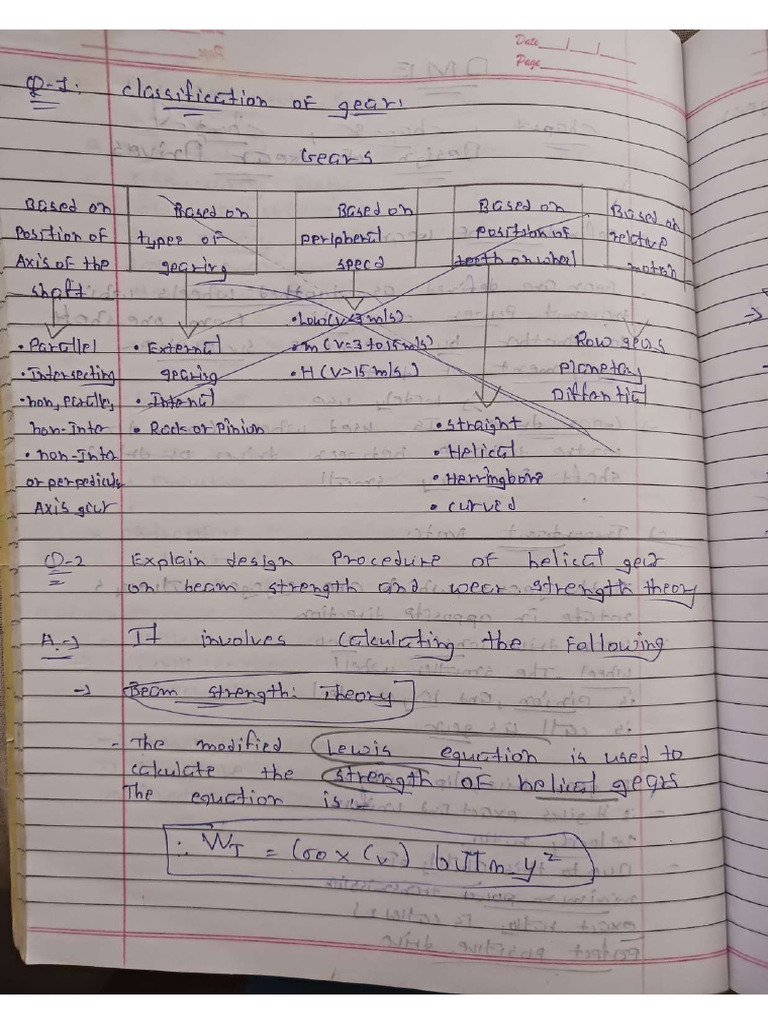 Date
Page
Q-1: Classification of gear:
Gears
Based on Position of Axis of the shaft
Based on types of gearing
Based on peripheral speed
Based on position of teeth on wheel
Based on motion
• Parallel
• Intersecting
• non, parallel, non-Inte
• non-Inte or perpedicular Axis gear
• External gearing
• Internal
• Rack or Pinion
• Low (V<3 m/s)
• m (V=3 to 15 m/s)
• H (V>15 m/s)
• straight
• Helical
• Herringbone
• curved
Row gears
Planetary
Differntial
Q-2 Explain design Procedure of helical gear
on beam strength and wear strength theory
A.→ It involves calculating the following
→ Beam strength: Theory
- The modified Lewis equation is used to
calculate the strength of helical gears
The equation is :-
∴ WT = (σo x Cv) b π m y²